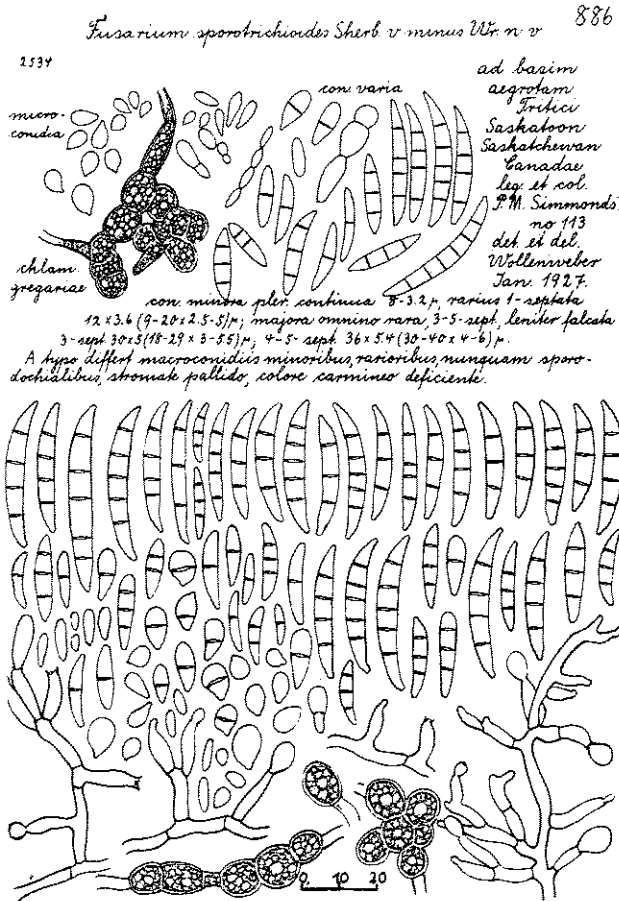 886
Fusarium sporotrichioides Sherb. v minus Wr. n v
2534
micro-
conidia
con. varia
chlam.
gregariae
ad basim
aegrotam
Tritici
Saskatoon
Saskatchewan
Canadae
leg. et col.
P.M. Simmonds
no 113
det. et del.
Wollenweber
Jan. 1927.
con. minora pler. continua 8-3.2 μ, rarius 1-septata
12x3.6 (9-20x2.5-5) μ; majora omnino rara, 3-5-sept., leniter falcata
3-sept. 30x5 (18-29 x 3-5.5) μ; 4-5-sept. 36x5.4 (30-40 x 4-6) μ.
A typo differt macroconidiis minoribus, rarioribus, nunquam sporo-
dochialibus, stromate pallido, colore carmineo deficiente.
0 10 20